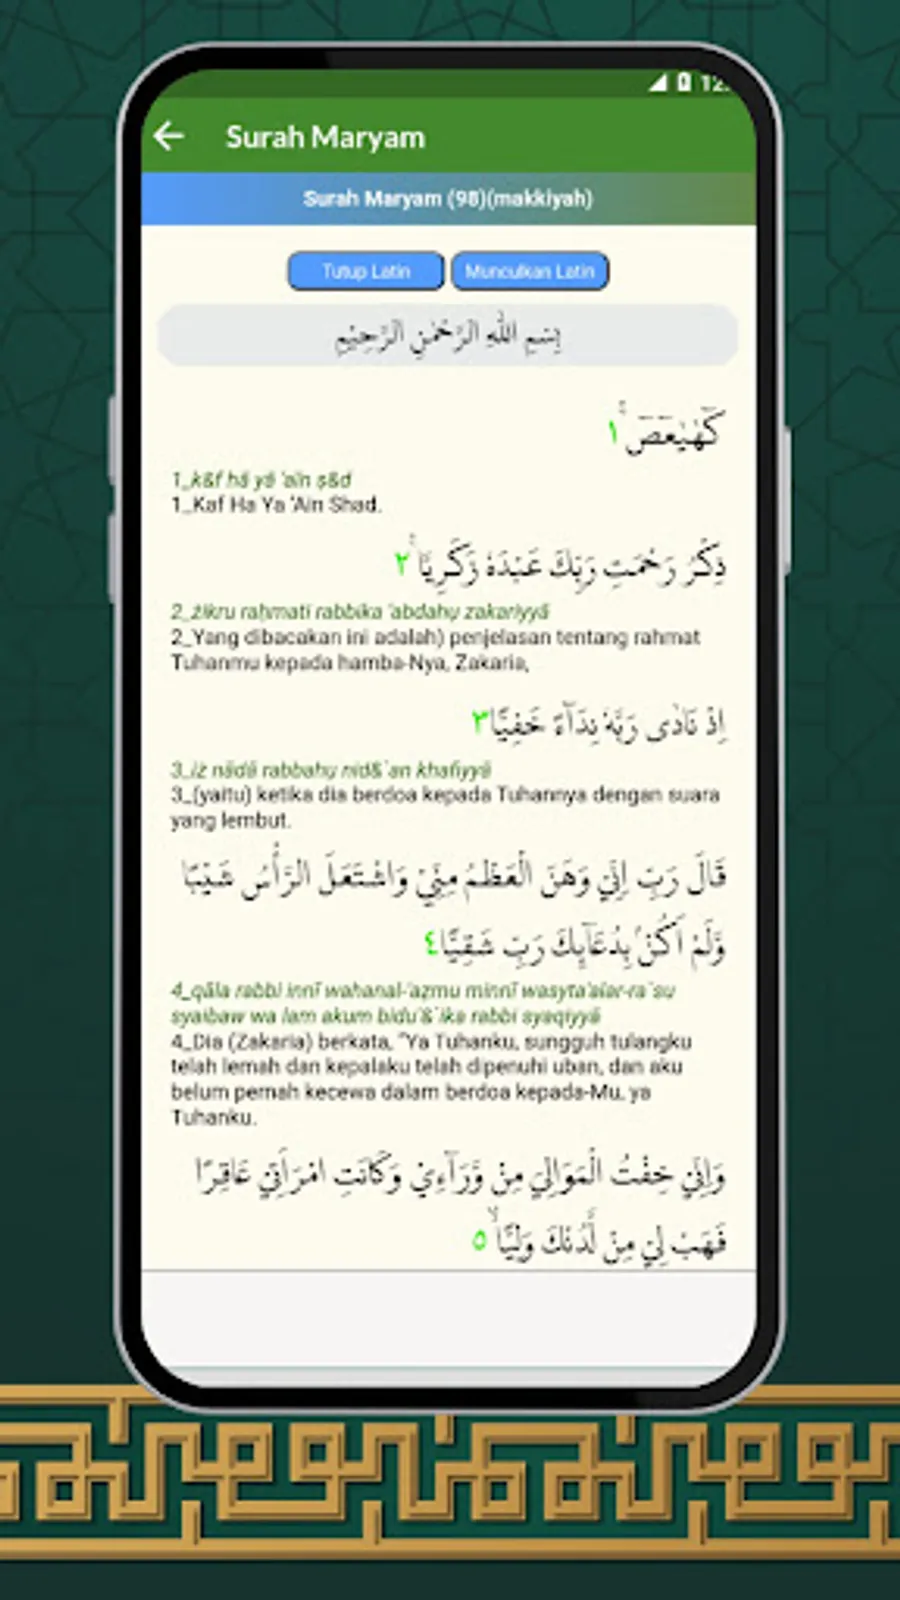 12:
Surah Maryam
Surah Maryam (98)(makkiyah)
Tutup Latin
Munculkan Latin
بِسْمِ اللّٰهِ الرَّحْمٰنِ الرَّحِيْمِ
كۤهٰيٰعۤصۤ ۚ١
1_k&f hā yā 'aīn ṣ&d
1_Kaf Ha Ya 'Ain Shad.
ذِكْرُ رَحْمَتِ رَبِّكَ عَبْدَهٗ زَكَرِيَّا ۚ٢
2_żikru raḥmati rabbika 'abdahụ zakariyyā
2_Yang dibacakan ini adalah) penjelasan tentang rahmat
Tuhanmu kepada hamba-Nya, Zakaria,
اِذْ نَادٰى رَبَّهٗ نِدَاۤءً خَفِيًّا٣
3_iż nādā rabbahụ nid&`an khafiyyā
3_(yaitu) ketika dia berdoa kepada Tuhannya dengan suara
yang lembut.
قَالَ رَبِّ اِنِّيْ وَهَنَ الْعَظْمُ مِنِّيْ وَاشْتَعَلَ الرَّأْسُ شَيْبًا
وَّلَمْ اَكُنْۢ بِدُعَاۤىِٕكَ رَبِّ شَقِيًّا٤
4_qāla rabbi innī wahanal-'aẓmu minnī wasyta'alar-ra`su
syaibaw wa lam akum bidu'&`ika rabbi syaqiyyā
4_Dia (Zakaria) berkata, "Ya Tuhanku, sungguh tulangku
telah lemah dan kepalaku telah dipenuhi uban, dan aku
belum pernah kecewa dalam berdoa kepada-Mu, ya
Tuhanku.
وَاِنِّيْ خِفْتُ الْمَوَالِيَ مِنْ وَّرَاۤءِيْ وَكَانَتِ امْرَاَتِيْ عَاقِرًا
فَهَبْ لِيْ مِنْ لَّدُنْكَ وَلِيًّا ۙ٥